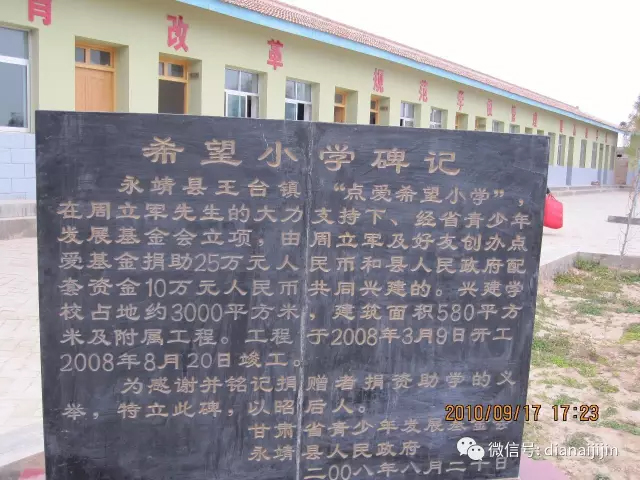 育改革 规范
希望小学碑记
永靖县王台镇“点爱希望小学”，
在周立军先生的大力支持下、经省青少年
发展基金会立项，由周立军及好友创办点
爱基金捐助25万元人民币和县人民政府配
套资金10万元人民币共同兴建的。兴建学
校占地约3000平方米，建筑面积580平方
米及附属工程。工程于2008年3月9日开工
2008年8月20日竣工。
为感谢并铭记捐赠者捐资助学的义
举，特立此碑，以昭后人。
甘肃省青少年发展基金会
永靖县人民政府
二00八年八月二十日
2010/09/17 17:23
微信号: dianaijijin